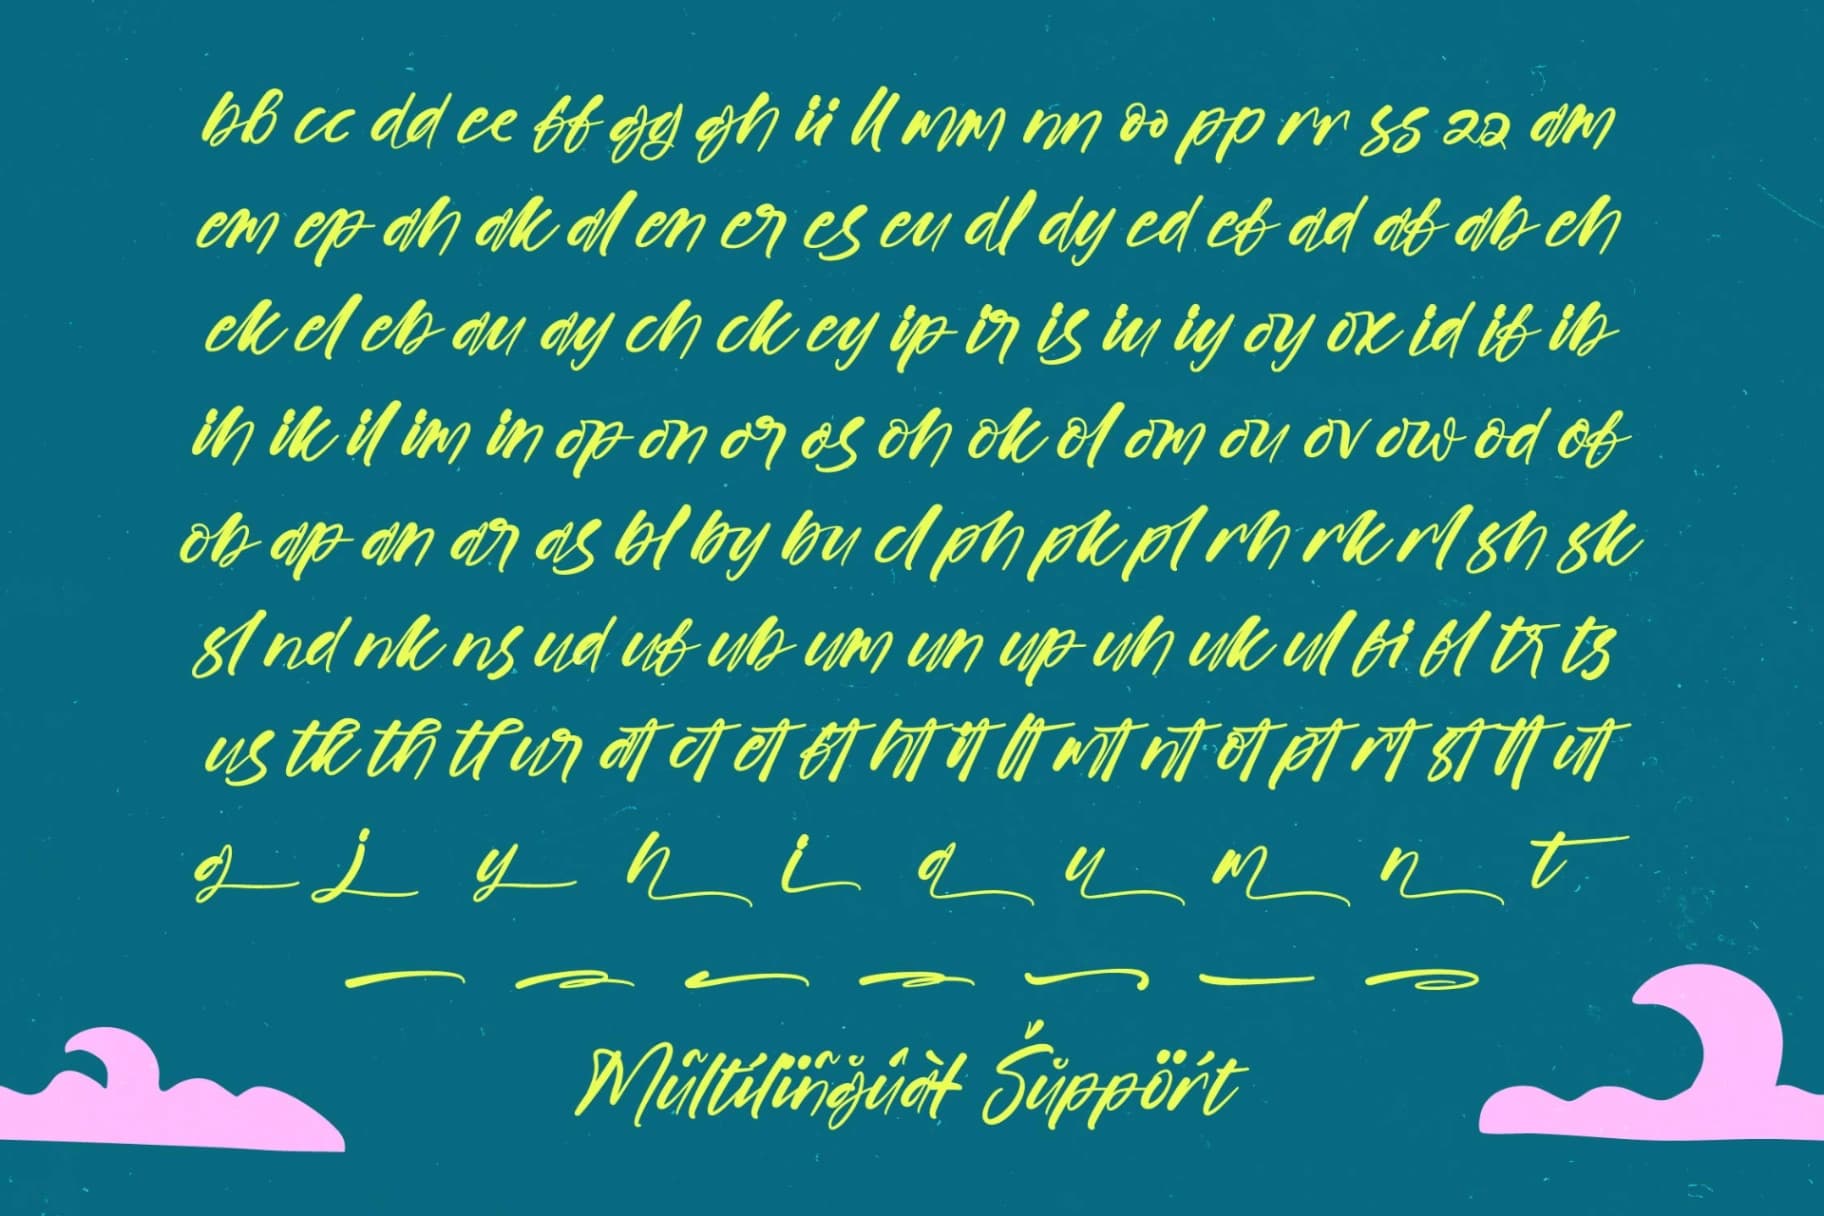 bb cc dd ee ff gg gh ii ll mm nn oo pp rr ss zz am
em ep ah ak al en er es eu dl dy ed ef ad af ab eh
ek el eb au ay ch ck ey ip ir is iu iy oy ox id if ib
ih ik il im in op on or os oh ok ol om ou ov ow od of
ob ap an ar as bl by bu cl ph pk pl rh rk rl sh sk
sl nd nk ns ud uf ub um un up uh uk ul fi fl tr ts
us tk th tl ur at ct et ft ht it lt mt nt ot pt rt st tt ut
g j y h i a u m n t
Mũltílïñg̊ûàł Šůppöŕt